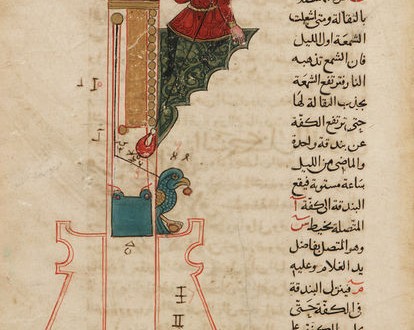 بالنقالة ومتى اشعلت
الشمعة اول الليل
فان الشمع تذهبه
النار فترتفع الشمعة
بجذب البقالة لها
حتى ترتفع الكفة
عن بندقة واحدة
والماضى من الليل
ساعة مستوية فيقع
البندقة الى الكفة
المتصلة بخيط
وهو المتصل بفاضل
يد الغلام وعليه
فينزل البندقة
فى الكفة حتى